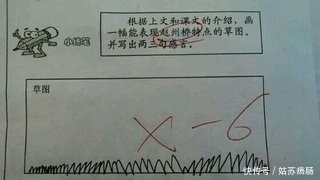 根据上文和课文的介绍，画
一幅能表现赵州桥特点的草图，
并写出两三句感言。
小楷笔
草图
× -6
快传号 / 姑苏痛肠